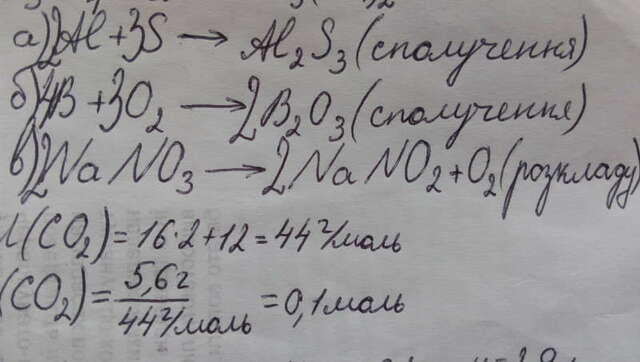 а) 2Al + 3S → Al₂S₃ (сполучення)
б) 4B + 3O₂ → 2B₂O₃ (сполучення)
в) 2NaNO₃ → 2NaNO₂ + O₂ (розкладу)
(CO₂) = 16·2 + 12 = 44 г/моль
(CO₂) = 5,6 г / 44 г/моль = 0,1 моль